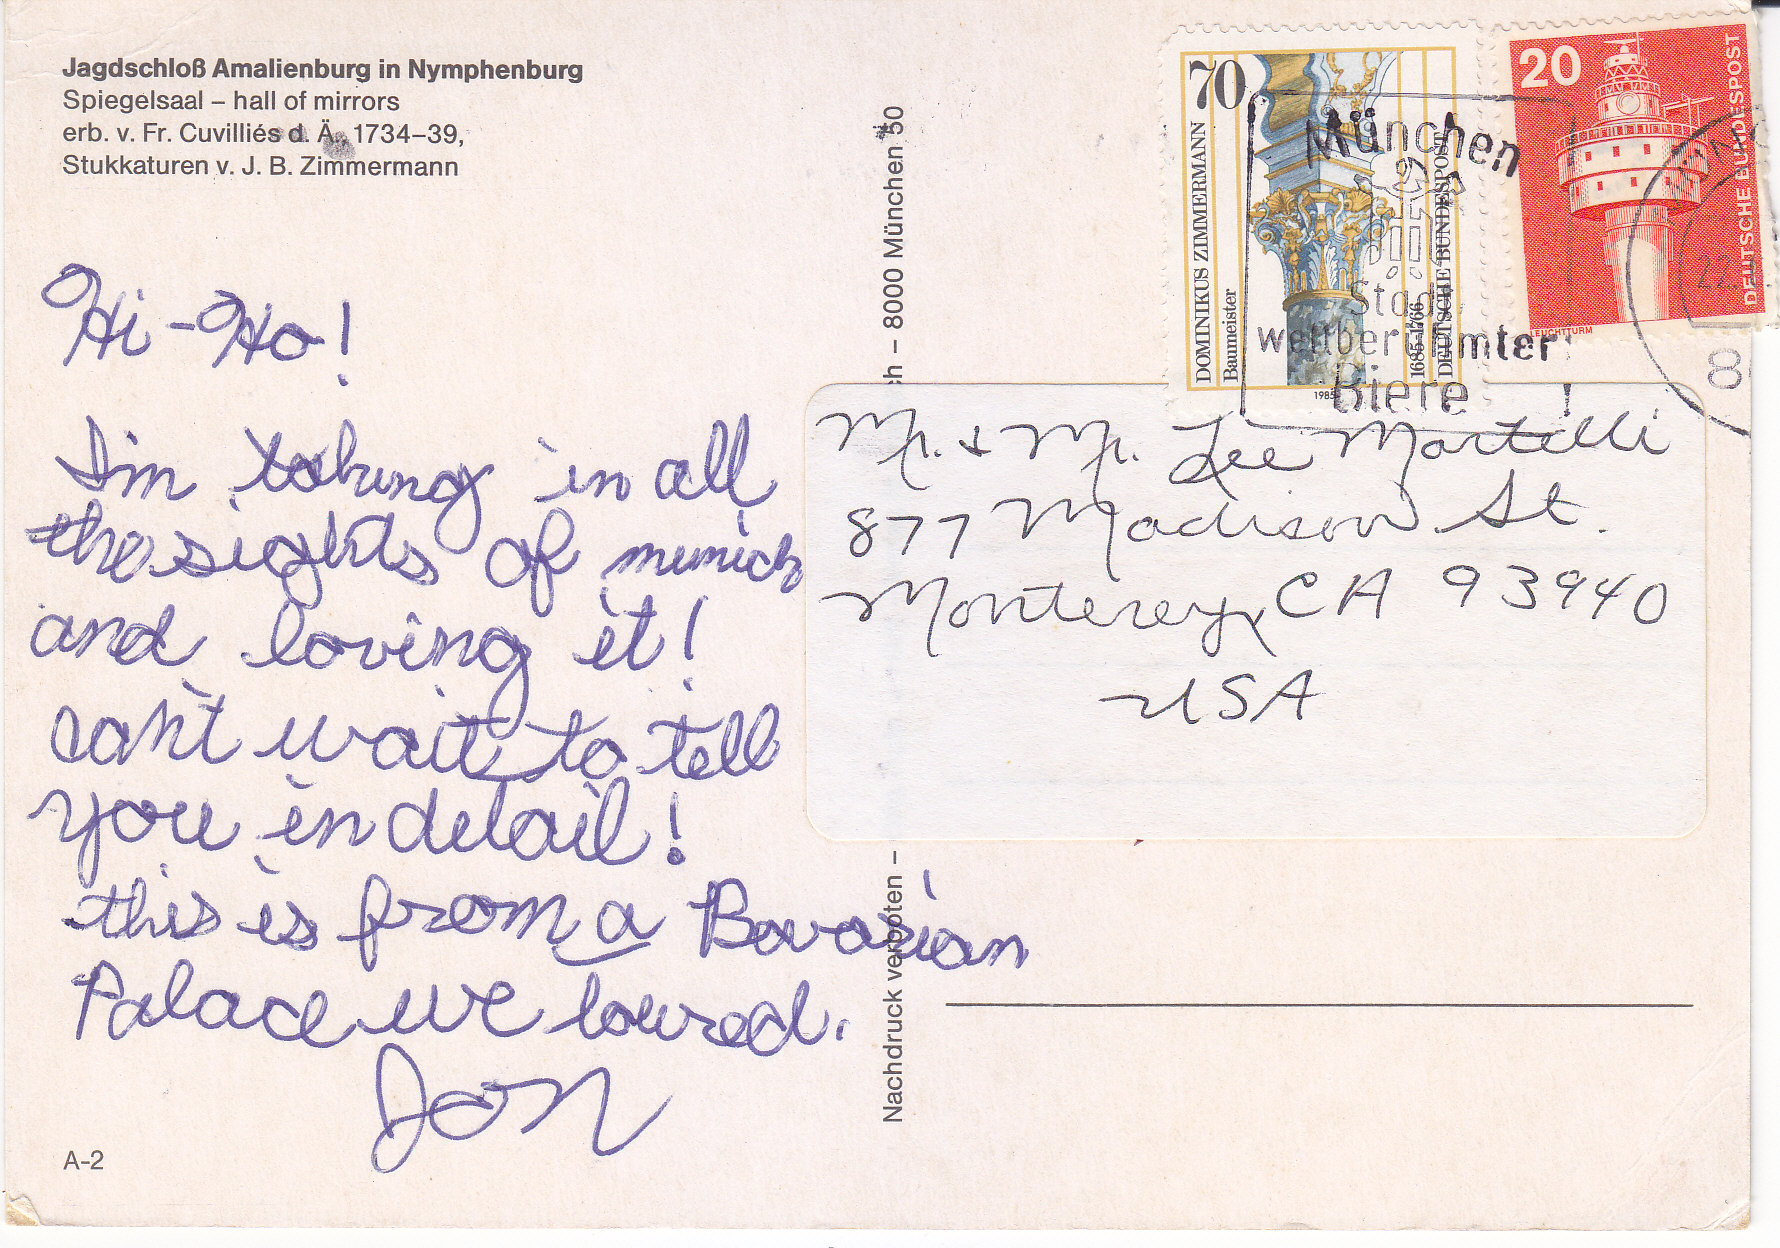 Jagdschloß Amalienburg in Nymphenburg
Spiegelsaal – hall of mirrors
erb. v. Fr. Cuvilliés d. Ä., 1734–39,
Stukkaturen v. J. B. Zimmermann
Hi-Ho!
I'm taking in all
the sights of munich
and loving it!
can't wait to tell
you in detail!
this is from a Bavarian
Palace we toured.
Jon
A-2
Nachdruck verboten –
ch – 8000 München 50
70
DOMINIKUS ZIMMERMANN
Baumeister
1685-1766
DEUTSCHE BUNDESPOST
1985
20
DEUTSCHE BUNDESPOST
LEUCHTTURM
München
Stadt
weltberühmter
Biere
22.
8
Mr. & Mr. Lee Martelli
877 Madison St.
Monterey, CA 93940
USA